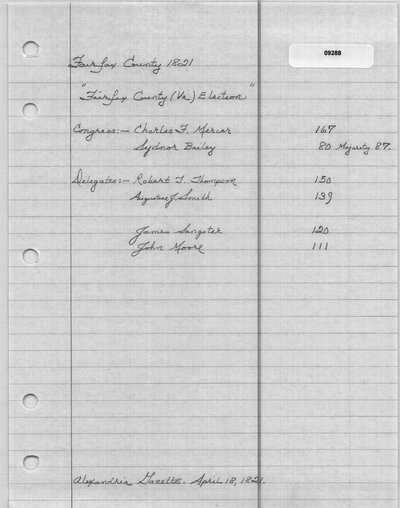 09288
Fairfax County 1821
"Fairfax County (Va) Election"
Congress:- Charles F. Mercer 167
Sydnor Bailey 80 Majority 87.
Delegates:- Robert T. Thompson 150
Augustine J Smith 139
James Sangster 120
John Moore 111
Alexandria Gazette. April 18, 1821.